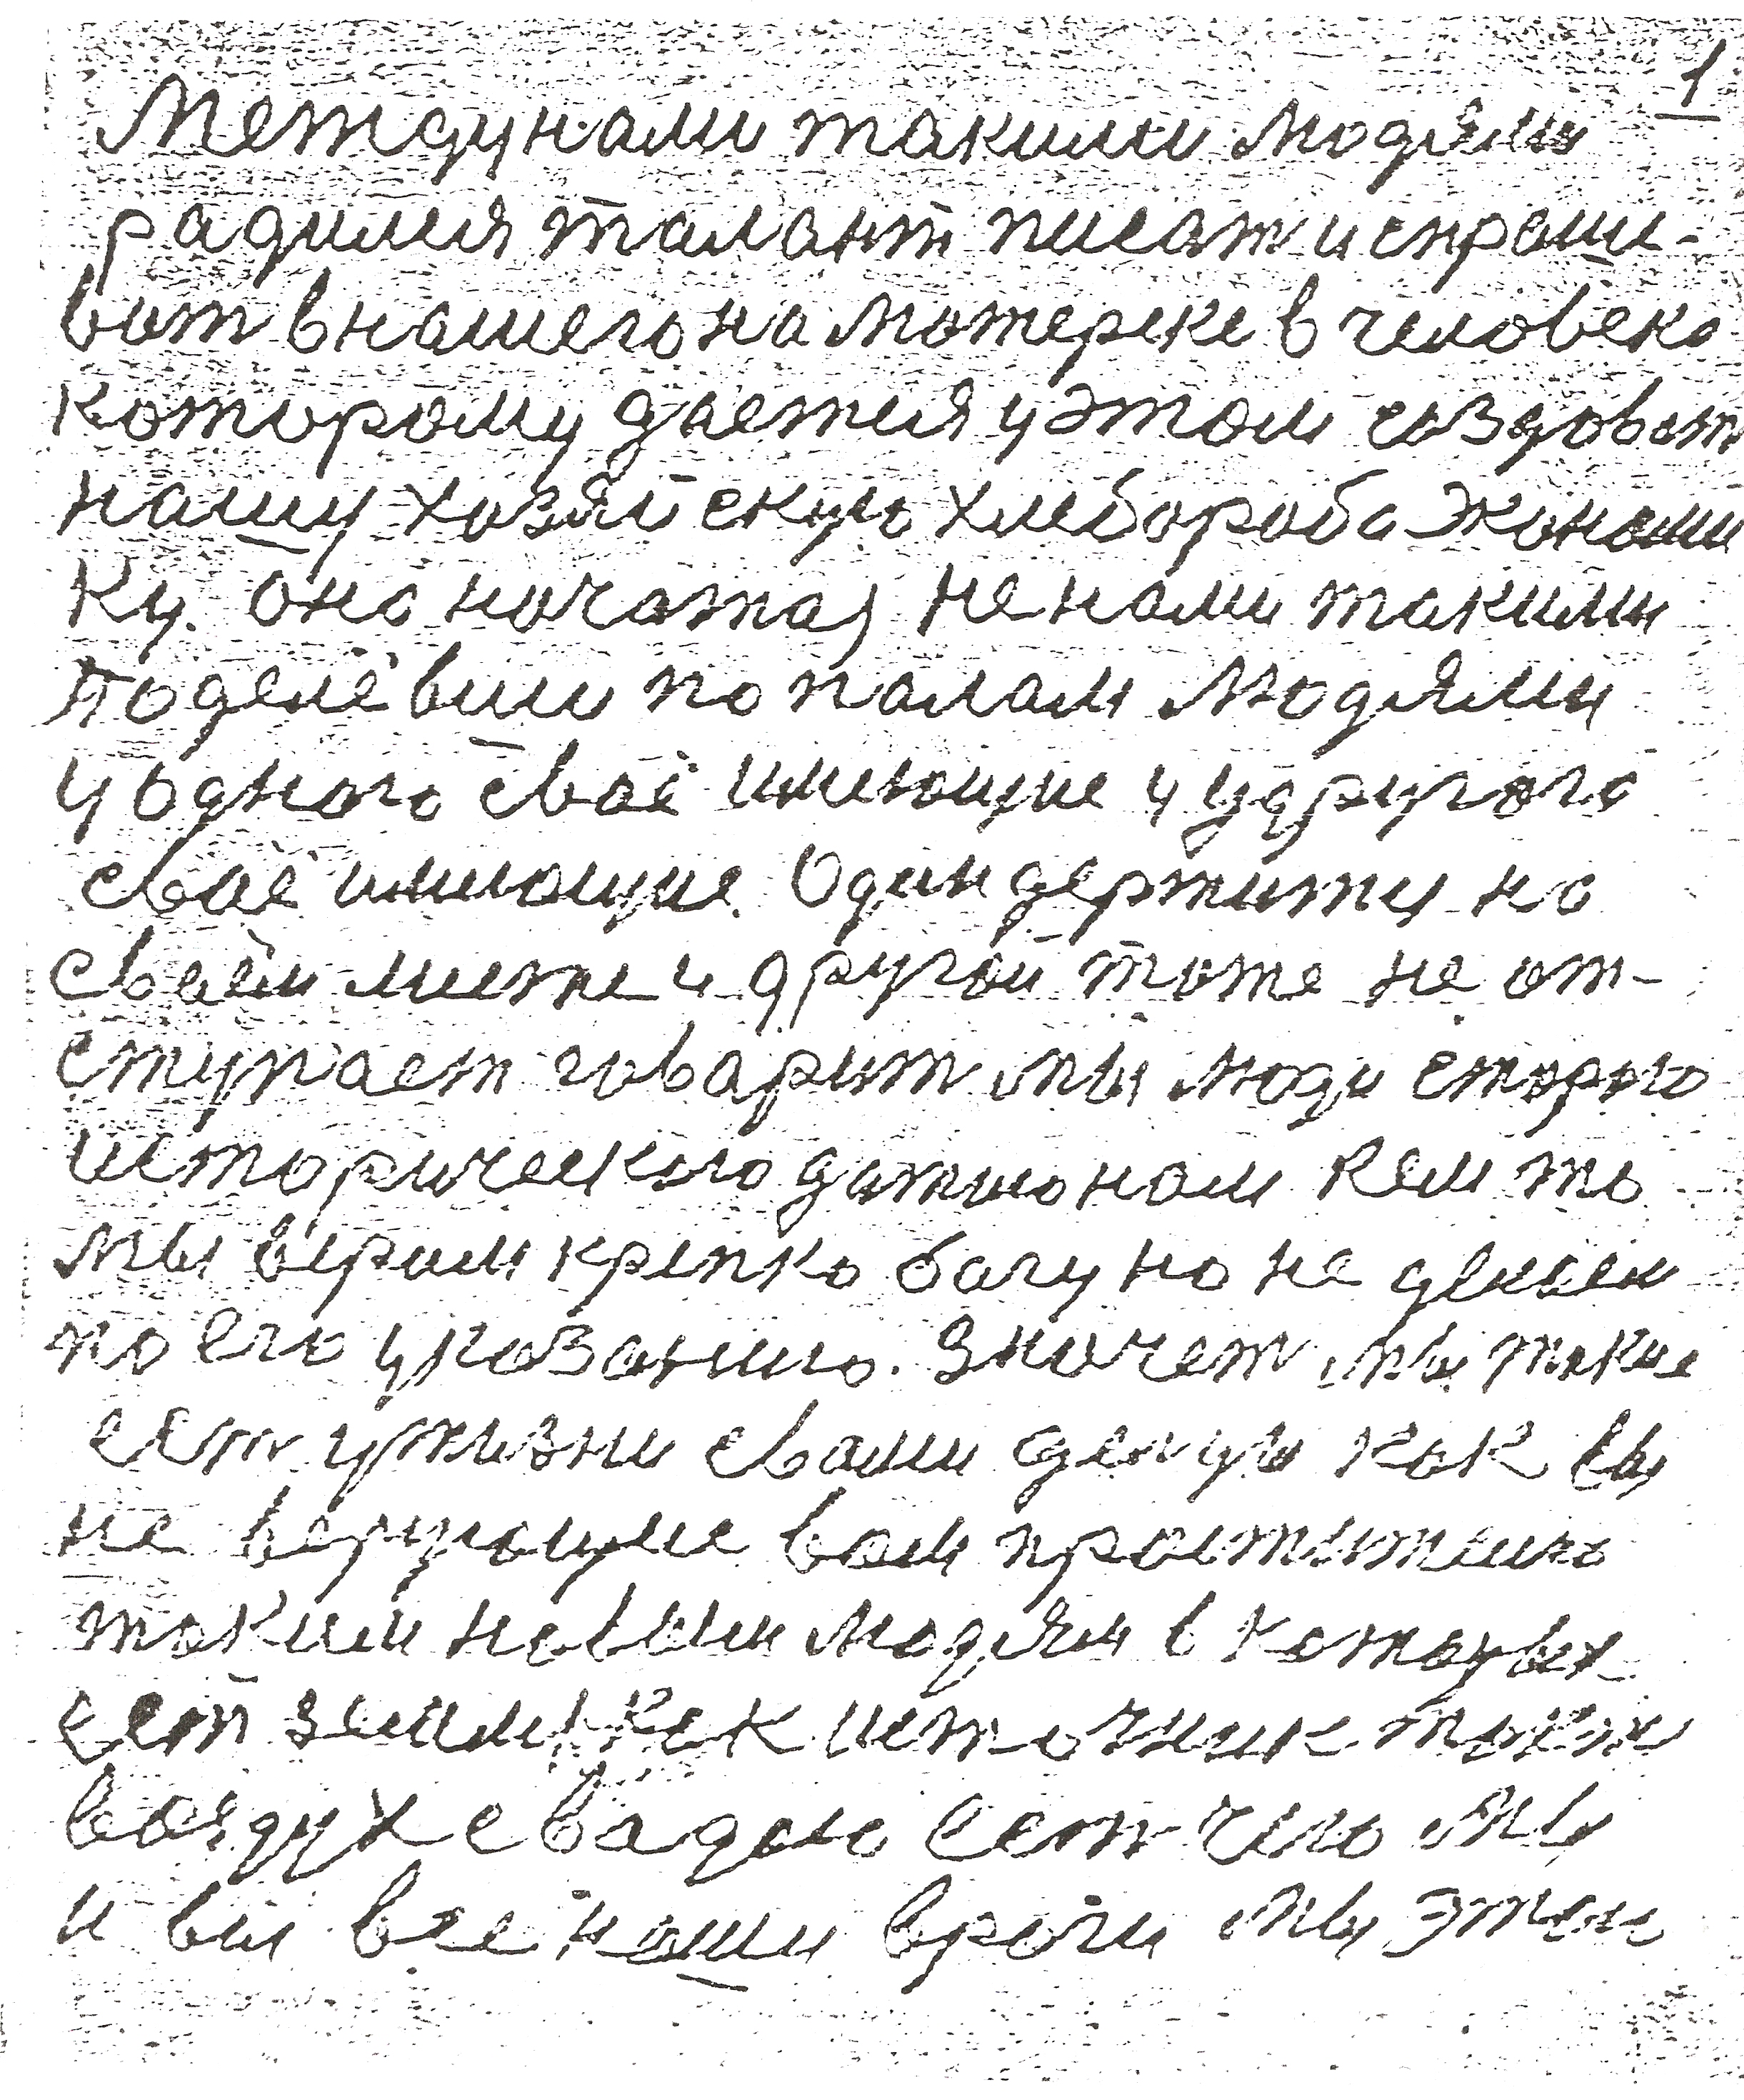 1
Междунами такими людями
радился талант писат и спраши-
ват внашего на матереке в человека
которому дается уэтом создават
нашу хозяйскую хлебороба экономи
ку. она начата, не нами такими
поделёвши пополам людями
у одного своё имеющие и удругого
своё имеющие. Один держится на
своём месте и другой тоже не от-
ступает говарит мы люди старого
исторического детионам кем то
мы верим крепко богу но не делаем
по его указанию. Значет мы такие
ест ужизни сваими делую как вы
не верующие вам простительно
таким новым людям в которых
ест земля как источник также
воздух свадою ест чего мы
и вы все наши враги мы этаи